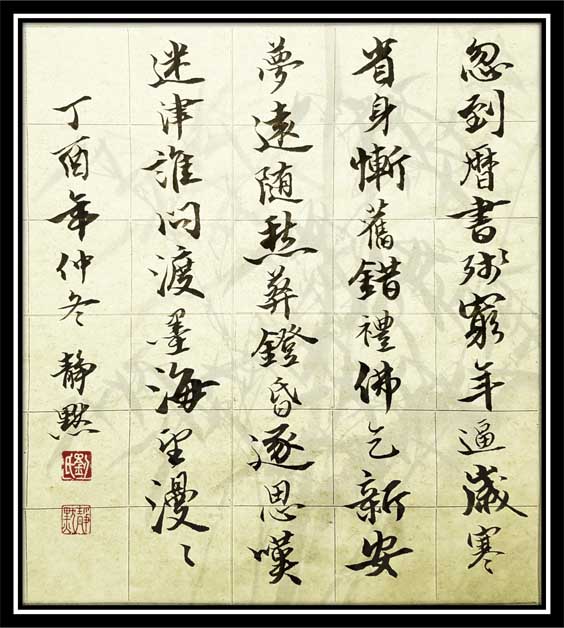 忽到曆書殘窮年逼歲寒
省身慚舊錯禮佛乞新安
夢遠随愁葬鐙昏逐思嘆
迷津誰問渡墨海望漫〻
丁酉年仲冬 静默
劉氏
靜默